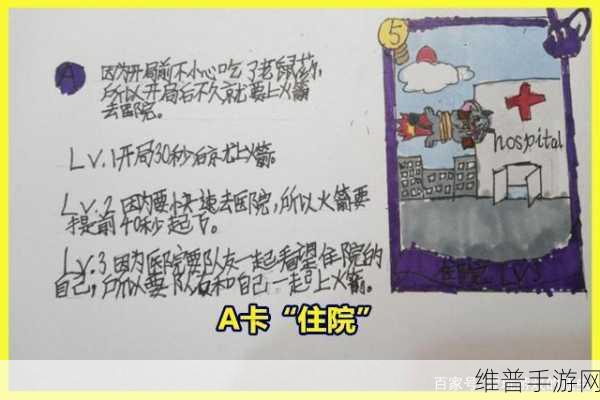 A
因为开局前不小心吃了老鼠药，
所以开局后不久就要上火箭
去医院。
Lv.1开局30秒后就上火箭。
Lv.2因为要快速去医院，所以火箭要
提前40秒起飞。
Lv.3因为医院要队友一起看望住院的
自己，所以要队友和自己一起上火箭。
5
hospital
住院 LV3
A卡“住院”
百家号
维普手游网